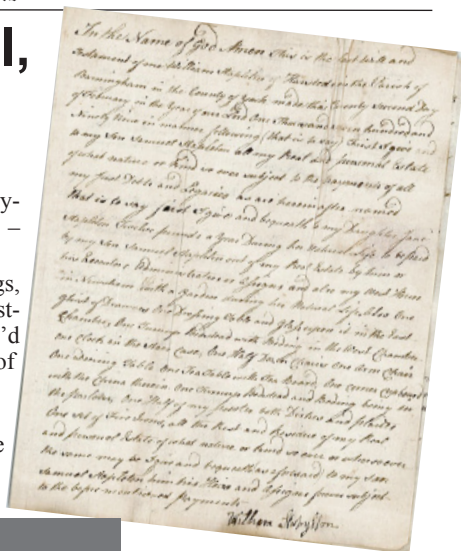 l,
y-
–
gs,
st-
'd
of
e
In the Name of God Amen This is the last Will and
Testament of me William Stapleton of in the Parish of
in the County of York made this Twenty Second Day
of February in the Year of our Lord One Thousand Seven hundred and
Ninety Nine in manner following (that is to say) First I give
to my Son Samuel Stapleton all my Real and Personal Estate
of what nature or kind so ever subject to the payments of all
my Just Debts and Legacies as are herein after named
That is to say first I give and bequeath to my Daughter Jane
Stapleton Twelve pounds a Year During her Natural Life to be paid
by my Son Samuel Stapleton out of my Real Estate by him or
his Executors Administrators or Assigns and also my House
in with a Garden during her Natural Life also One
Chest of Drawers One Dressing Table and in the East
Chamber, One Bedstead with Bedding in the West Chamber
One Clock in the Case, One Half Dozen Chairs one Arm Chair
One Dining Table One Tea Table with Tea Board, One Corner Cupboard
with the China therein One Bedstead and Bedding being in
the Parlour, One Half of my Pewter both Dishes and plates
One Set of Fire Irons, all the Rest and Residue of my Real
and personal Estate of what nature or kind so ever or wheresoever
the same may be I give and bequeath as aforesaid to my Son
Samuel Stapleton him his Heirs and Assigns forever subject
to the before mentioned Payments
William